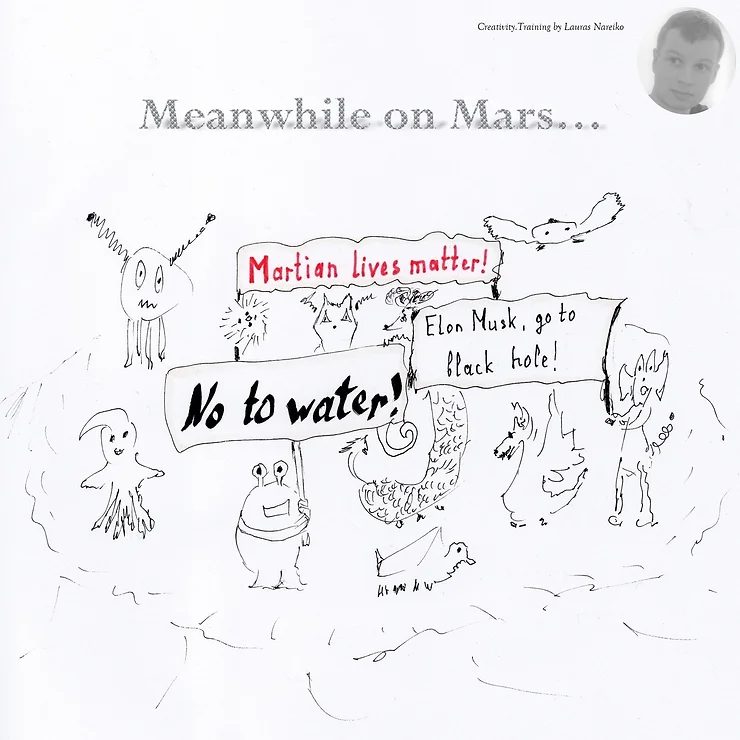 Creativity.Training by Lauras Nareiko
Meanwhile on Mars...
Martian lives matter!
Elon Musk, go to
black hole!
No to water!